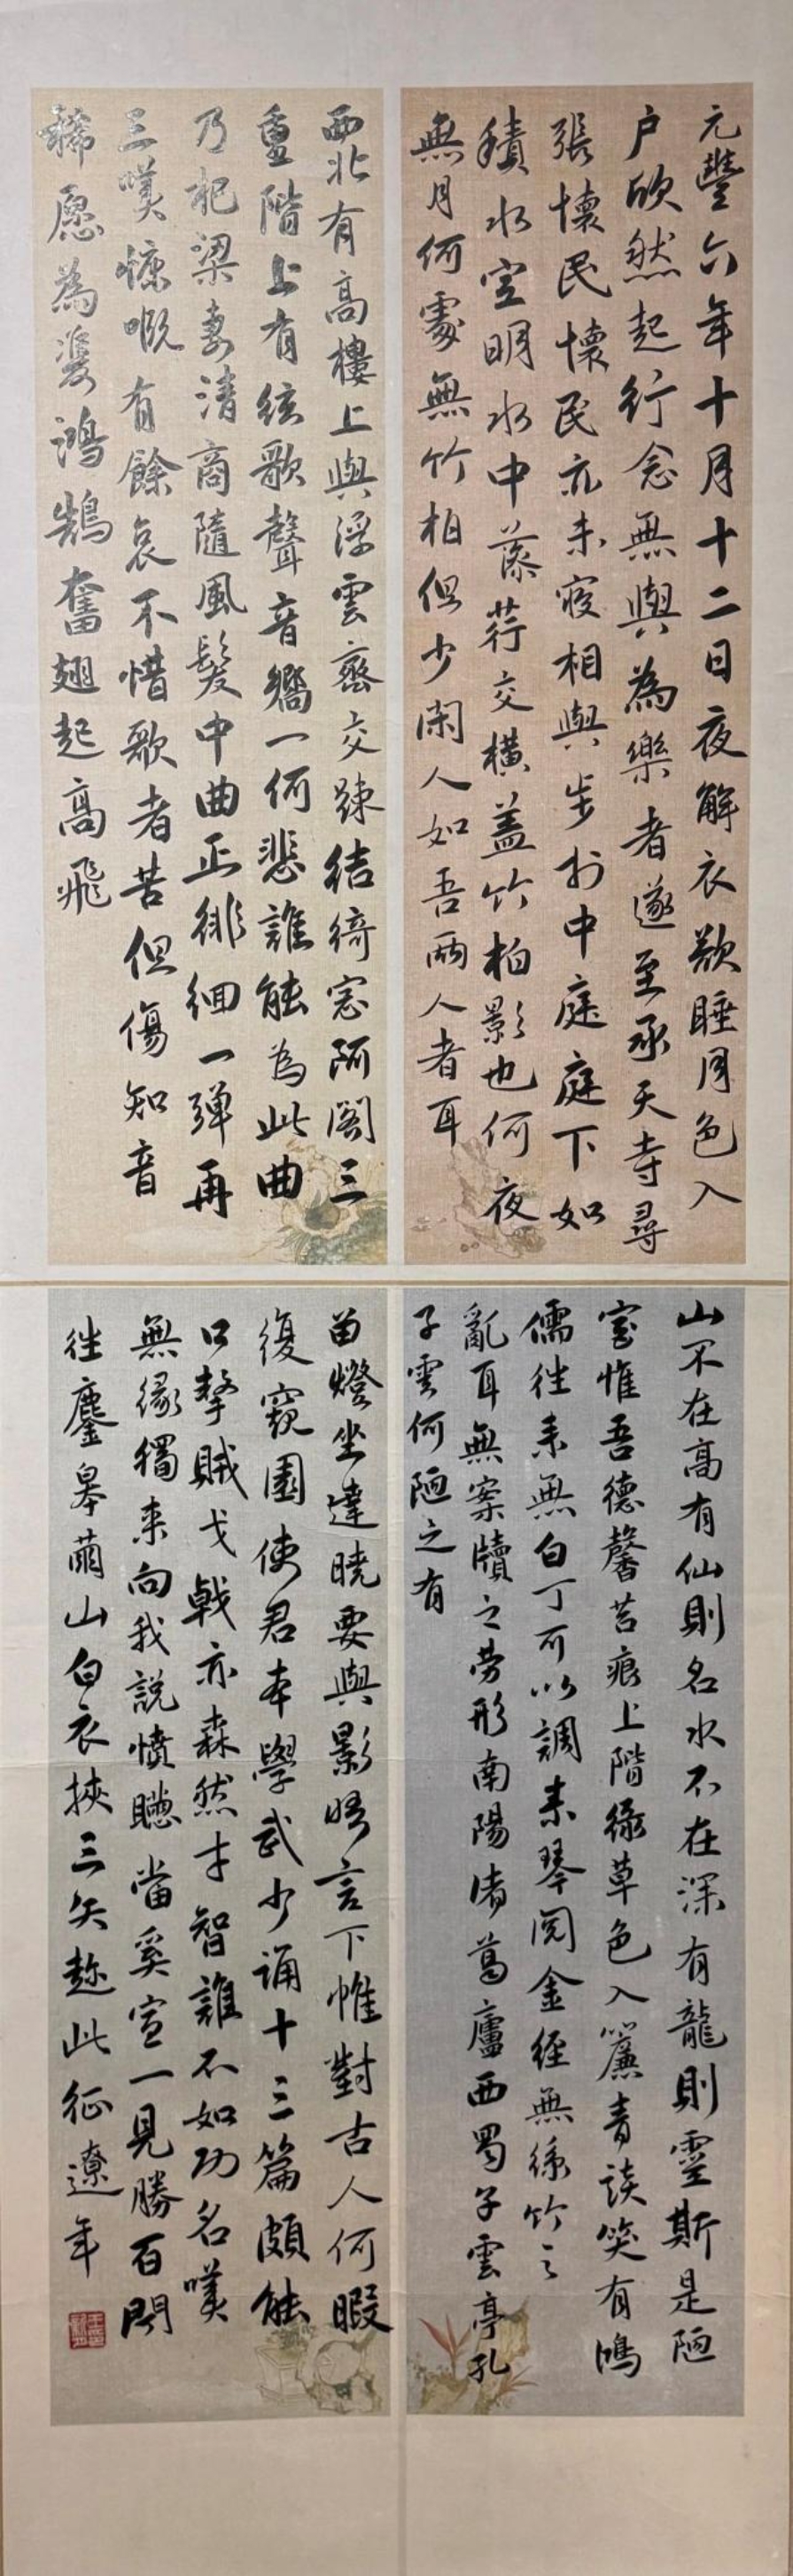 元豐六年十月十二日夜解衣欲睡月色入
户欣然起行念無與為樂者遂至承天寺尋
張懷民懷民亦未寢相與步於中庭庭下如
積水空明水中藻荇交橫蓋竹柏影也何夜
無月何處無竹柏但少閑人如吾兩人者耳
西北有高樓上與浮雲齊交疎結綺窓阿閣三
重階上有絃歌聲音響一何悲誰能為此曲
乃杞梁妻清商隨風發中曲正徘徊一彈再
三嘆慷慨有餘哀不惜歌者苦但傷知音
稀愿為雙鴻鵠奮翅起高飛
山不在高有仙則名水不在深有龍則靈斯是陋
室惟吾德馨苔痕上階綠草色入簾青談笑有鴻
儒往来無白丁可以調素琴閱金經無絲竹之
亂耳無案牘之勞形南陽諸葛廬西蜀子雲亭孔
子雲何陋之有
留燈坐達曉要與影晤言下帷對古人何暇
復窺園使君本學武少誦十三篇頗能
口擊賊戈戟亦森然才智誰不如功名嘆
無緣獨来向我說憤懣當奚宣一見勝百聞
往鏖皋蘭山白衣挾三矢趂此征遼年